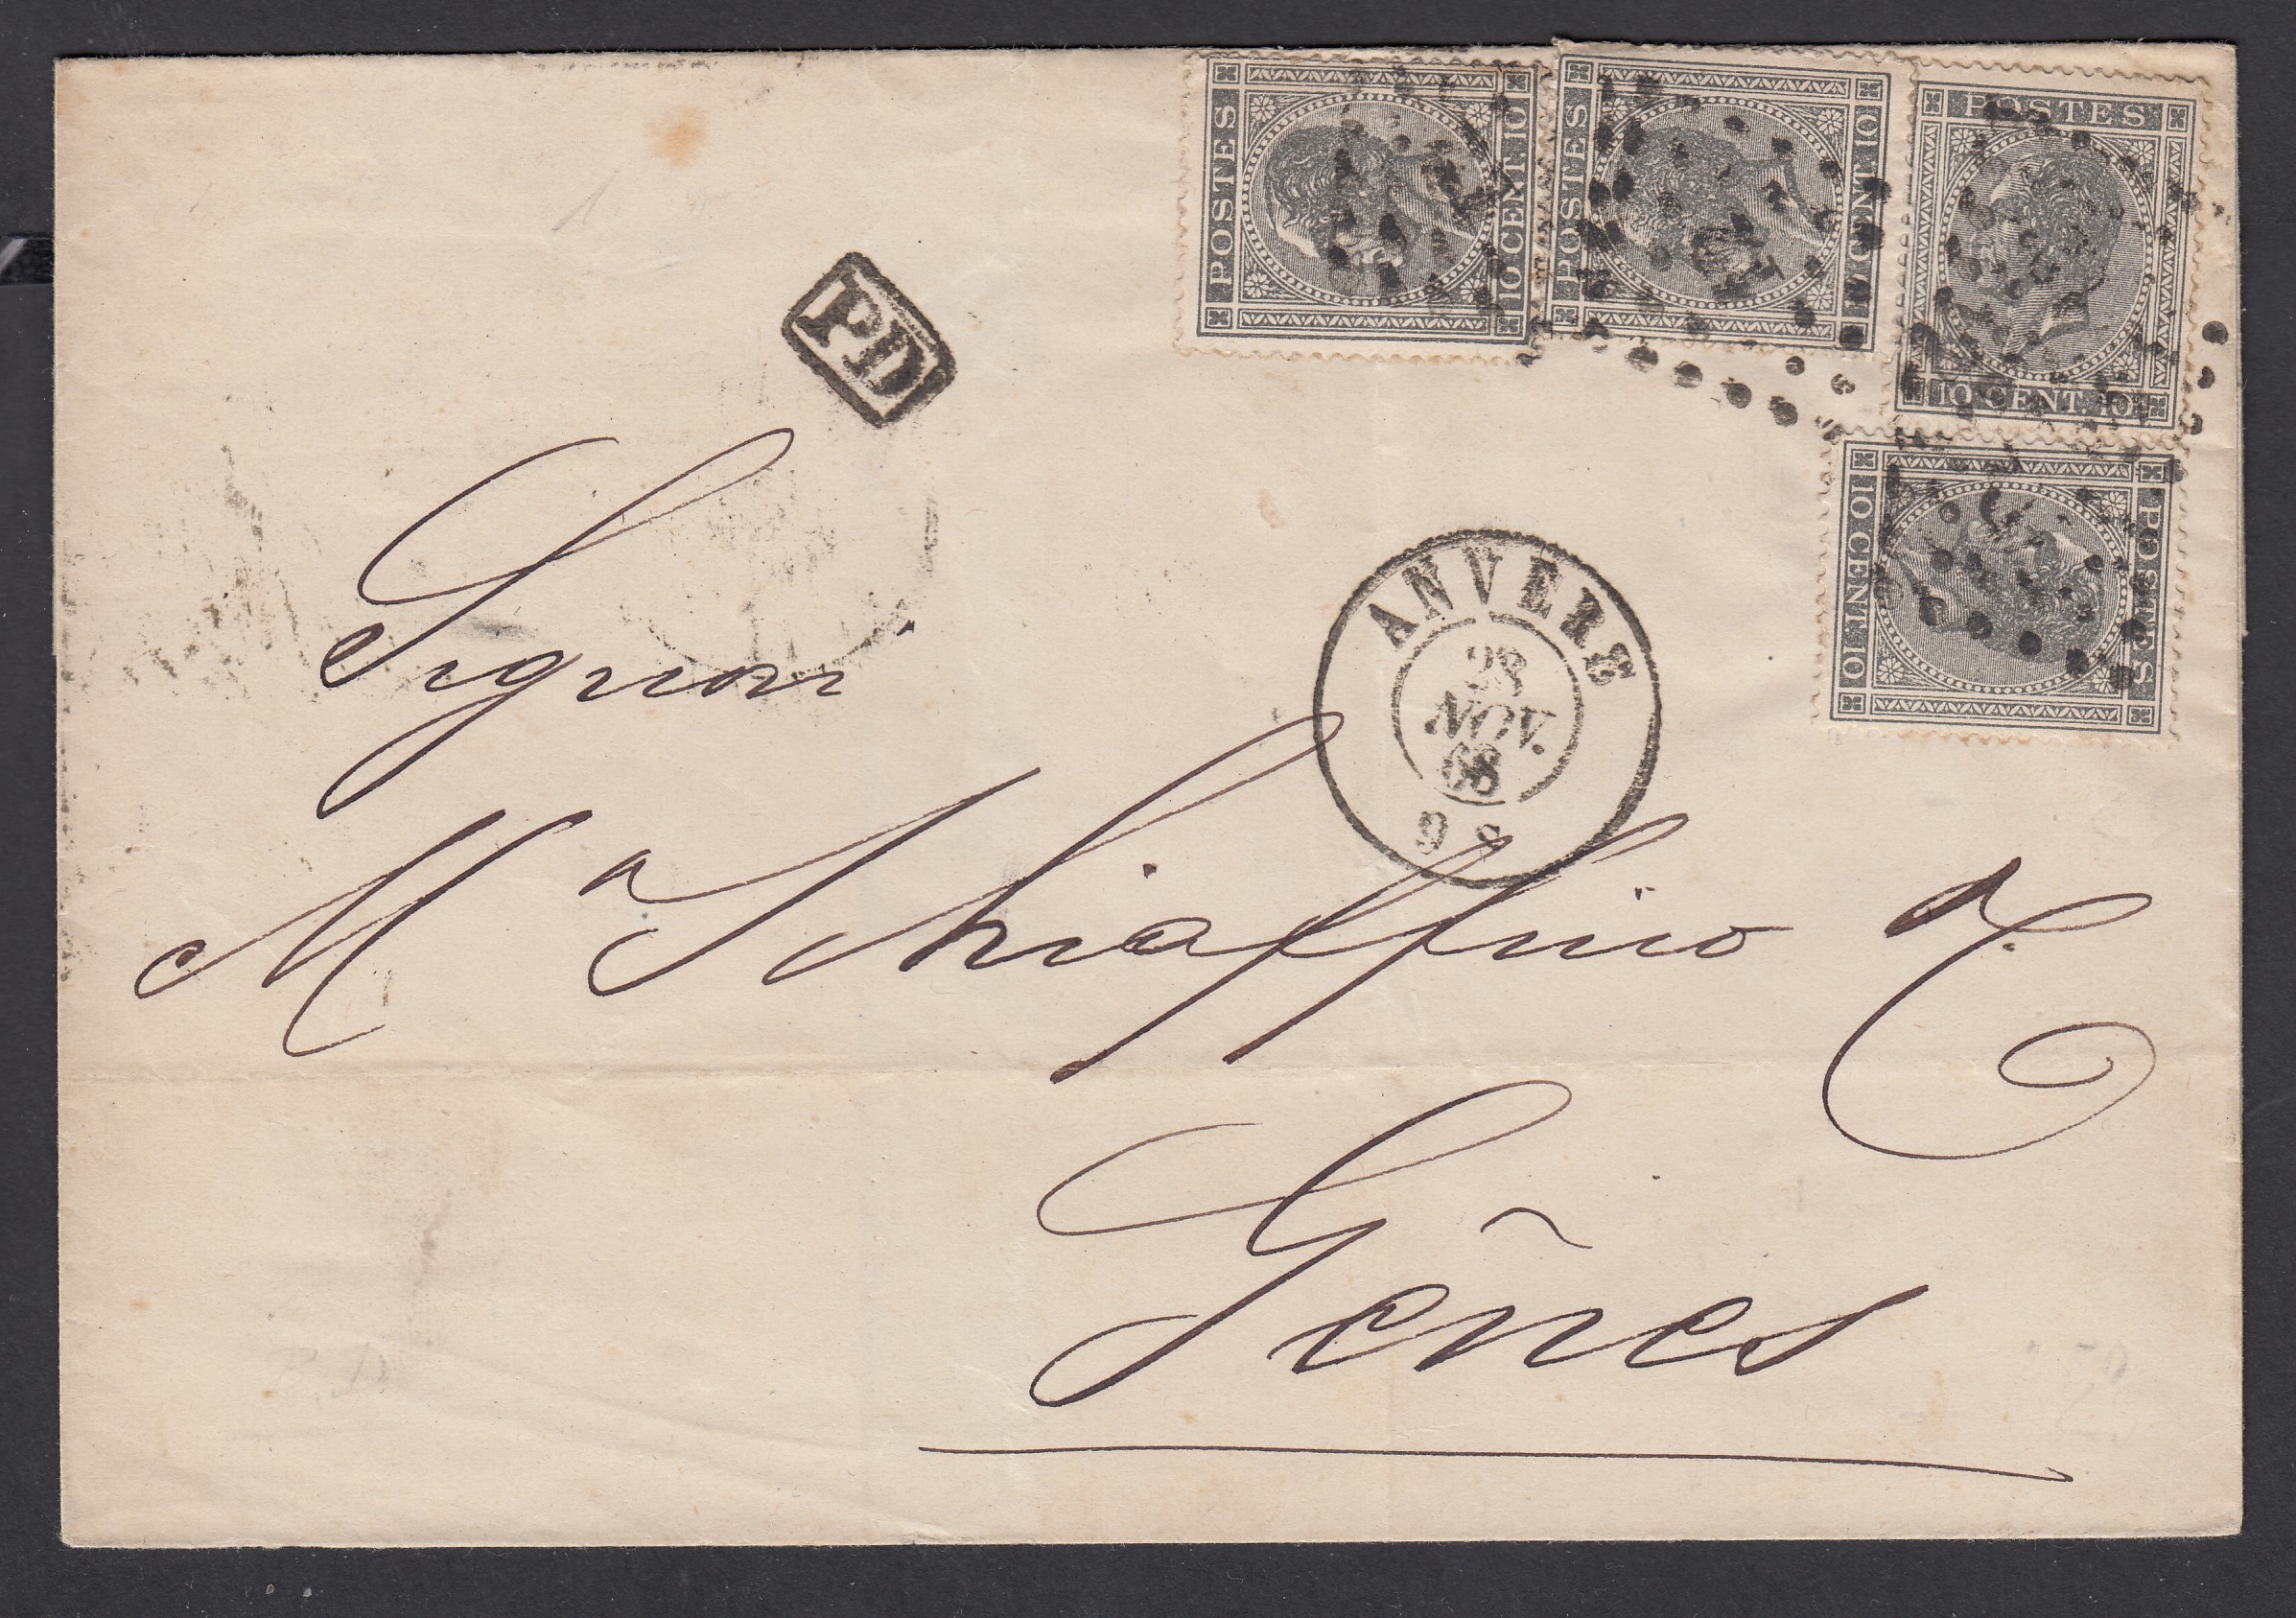 POSTES
10 CENT. 10
POSTES
10 CENT. 10
POSTES
10 CENT. 10
POSTES
10 CENT. 10
PD
ANVERS
28
NOV.
68
9
Signor
M Schiaffino
Gênes